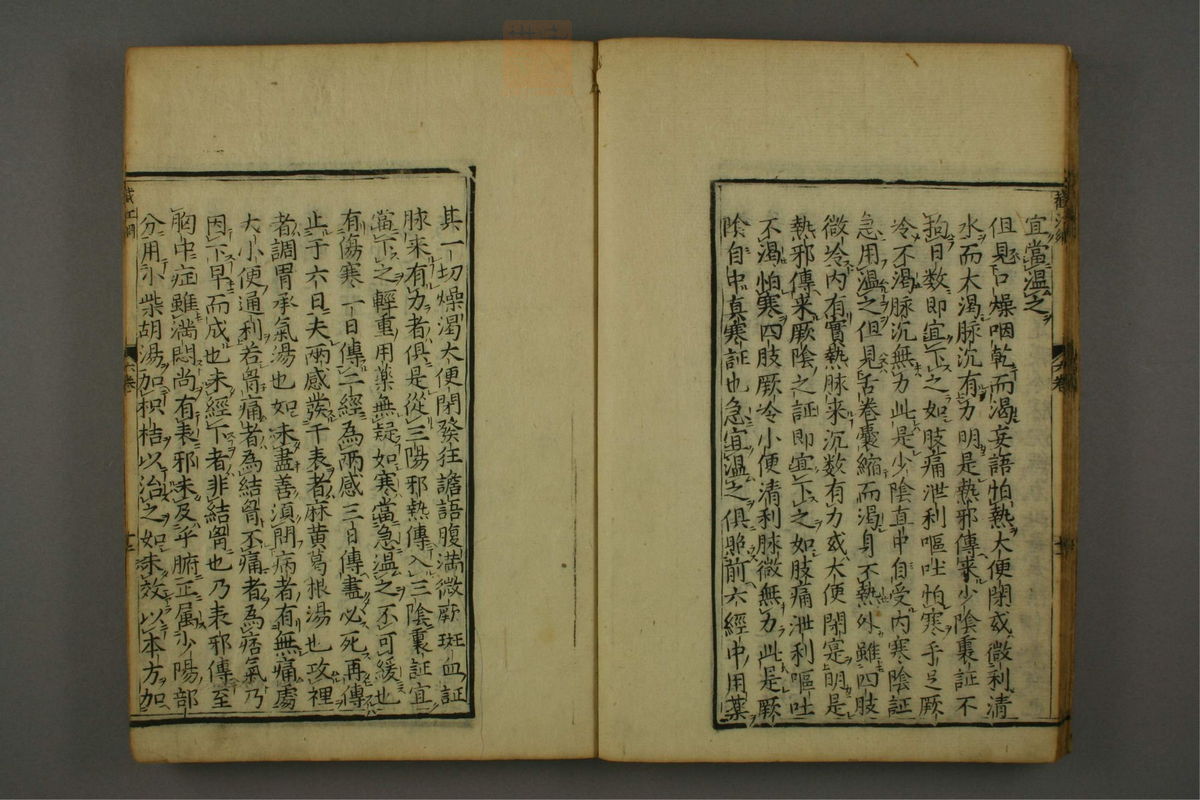 宜當温之
但見口燥咽乾而渴妄語怕熱大便閉或微利清
水而大渴脉沉有力明是熱邪傳来少陰裏証不
拘日数即宜下之如肢痛泄利嘔吐怕寒手足厥
冷不渴脉沉無力此是少陰直中自受内寒陰証
急用温之但見舌巻嚢縮而渴身不熱外雖四肢
微冷内有實熱脉来沉数有力或大便閉寔明是
熱邪傳来厥陰之証即宜下之如肢痛泄利嘔吐
不渴怕寒四肢厥冷小便清利脉微無力此是厥
陰自中真寒証也急宜温之俱照前六經中用薬
其一切燥渴大便閉發狂譫語腹満微厥斑血証
脉来有力者俱是從三陽邪熱傳入三陰裏証宜
當下之輕重用薬無疑如寒當急温之不可緩也
有傷寒一日傳二經為兩感三日傳盡必死再傳
止于六日夫兩感發于表者麻黄葛根湯也攻裡
者調胃承氣湯也如未盡善湏問病者有無痛處
大小便通利若胷痛者為結胷不痛者為痞氣乃
因下早而成也未經下者非結胷也乃表邪傳至
胸中症雖満悶尚有表邪未及乎腑正属少陽部
分用小柴胡湯加枳桔以治之如未效以本方加
六巻